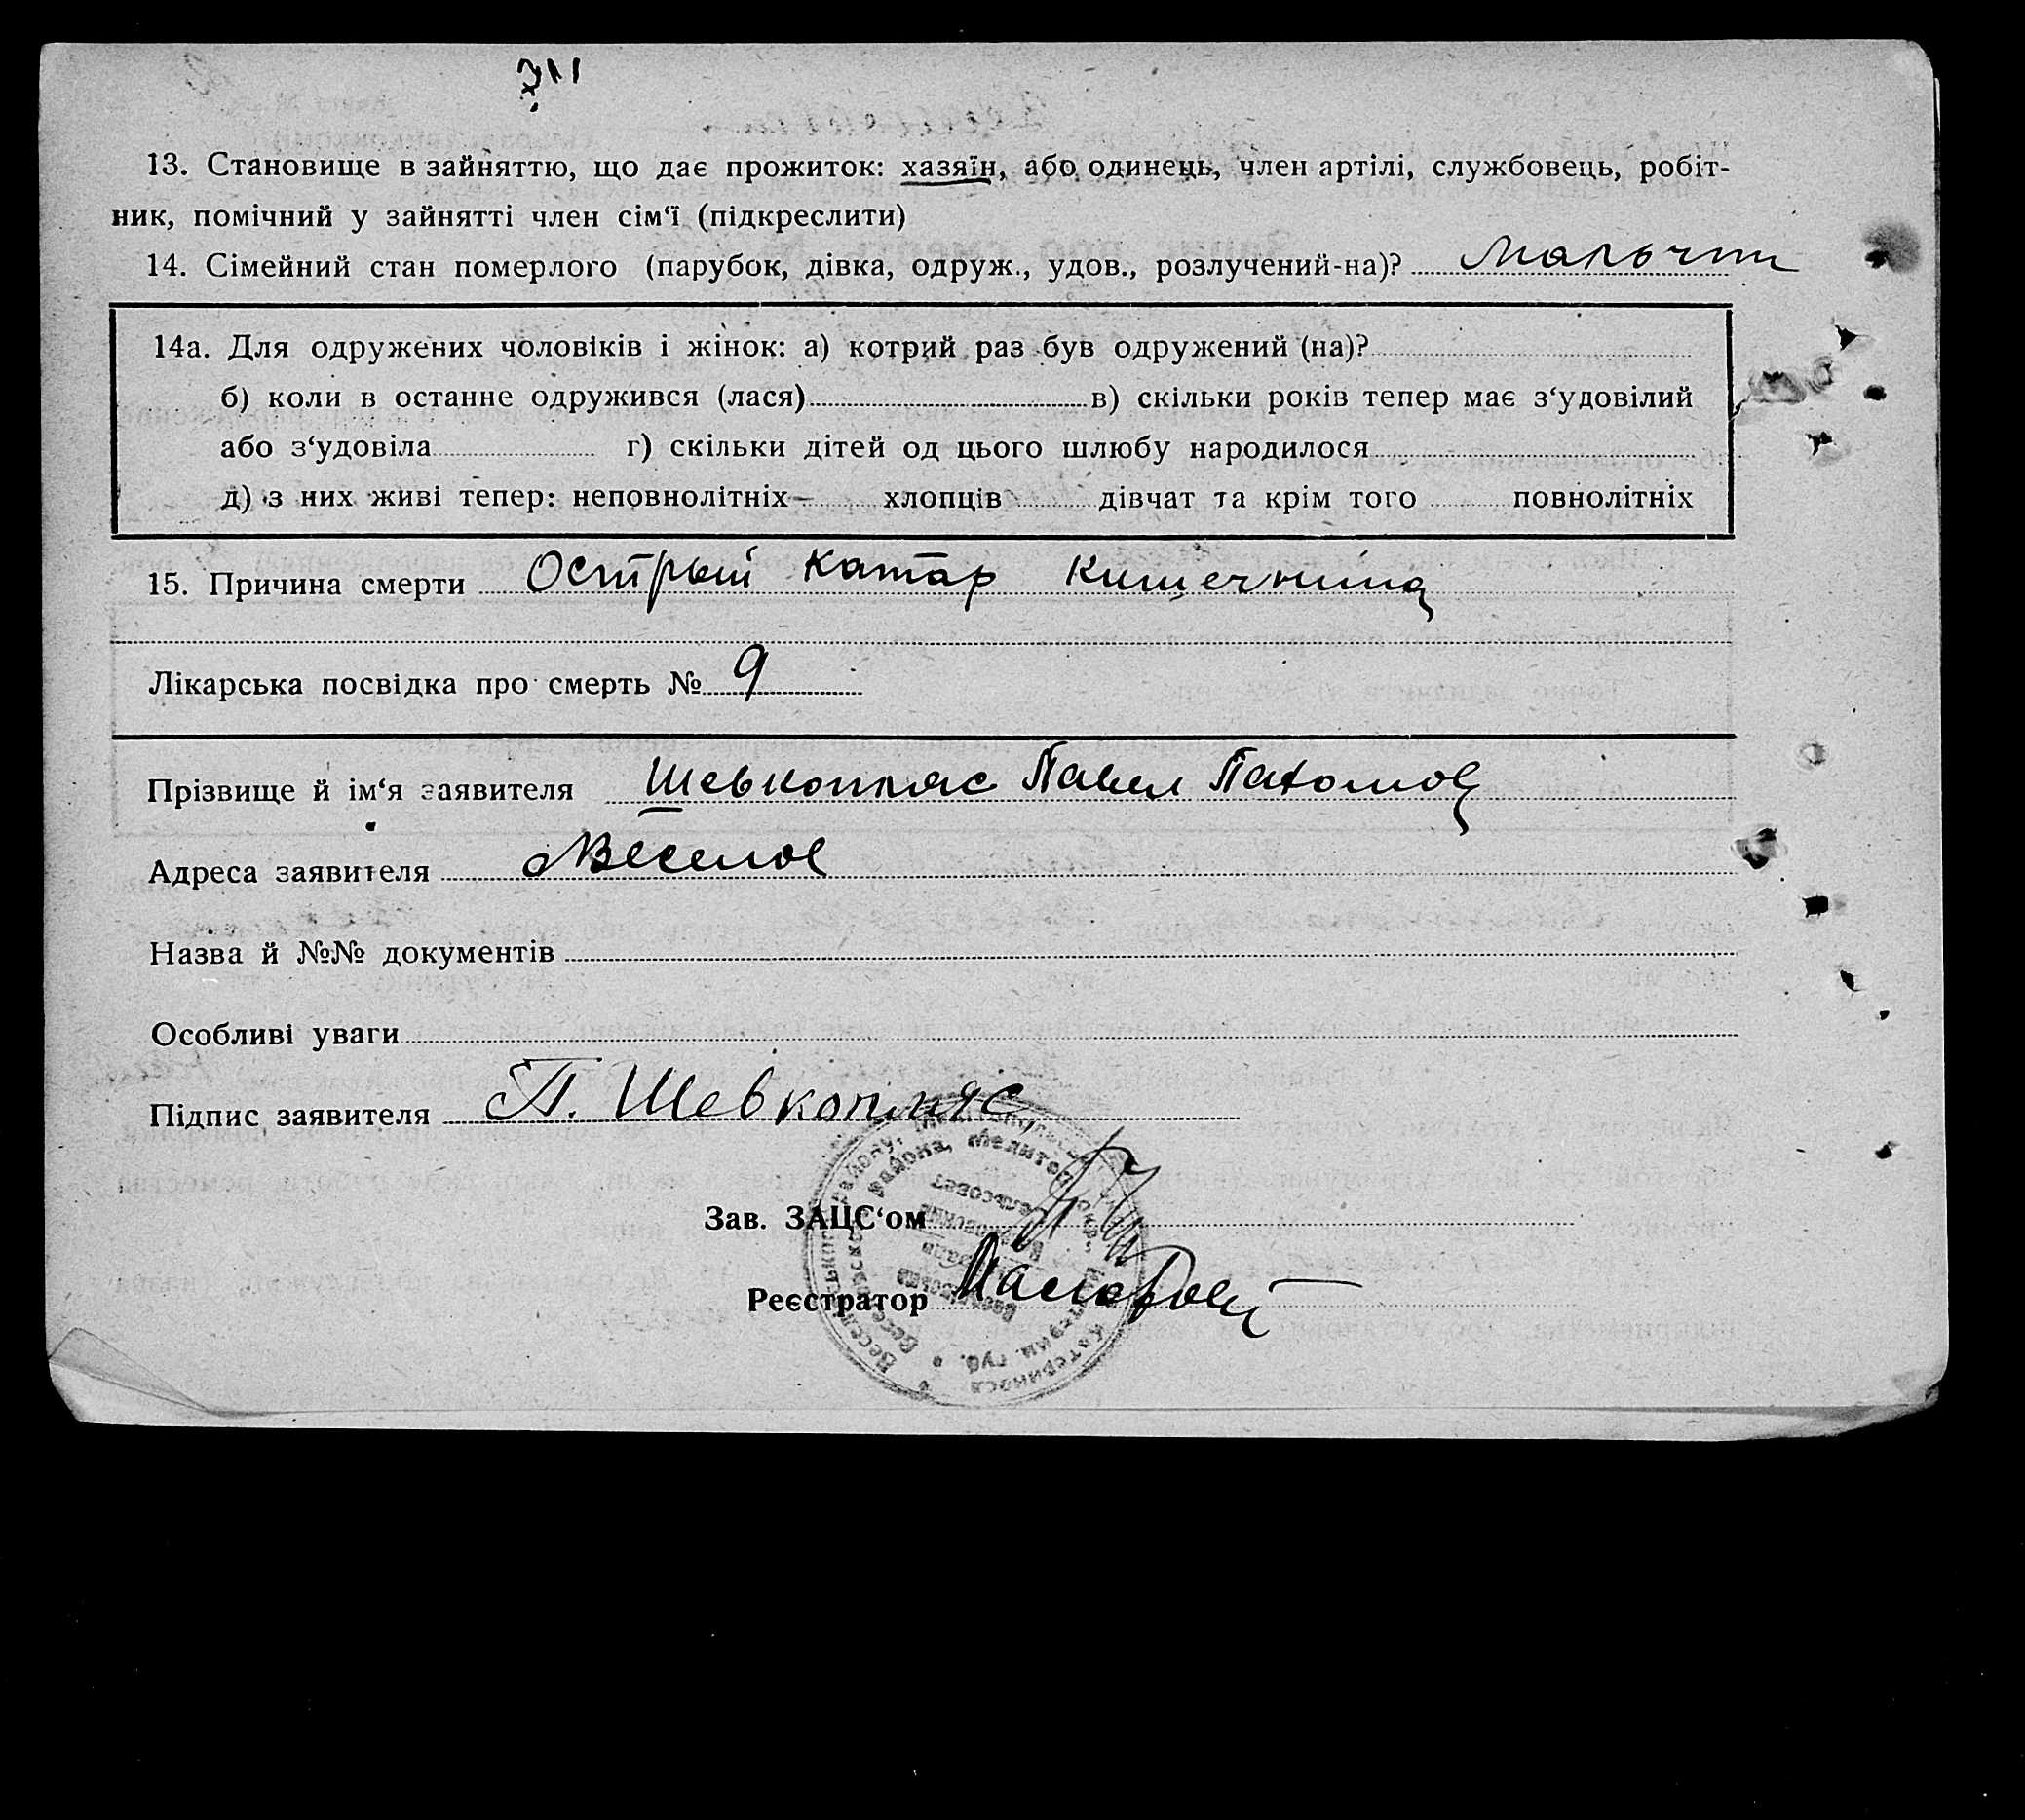 13. Становище в зайняттю, що дає прожиток: хазяїн, або одинець, член артілі, службовець, робіт-
ник, помічний у зайнятті член сім‘ї (підкреслити)
14. Сімейний стан померлого (парубок, дівка, одруж., удов., розлучений-на)?
14а. Для одружених чоловіків і жінок: а) котрий раз був одружений (на)?
б) коли в останне одружився (лася) в) скільки років тепер має з‘удовілий
або з‘удовіла г) скільки дітей од цього шлюбу народилося
д) з них живі тепер: неповнолітніх хлопців дівчат та крім того повнолітніх
15. Причина смерти Острый катар кишечника
Лікарська посвідка про смерть № 9
Прізвище й ім‘я заявителя Шевкопляс Павел Пахомов
Адреса заявителя Веселое
Назва й №№ документів
Особливі уваги
Підпис заявителя П. Шевкопляс
Зав. ЗАЦС‘ом
Реєстратор